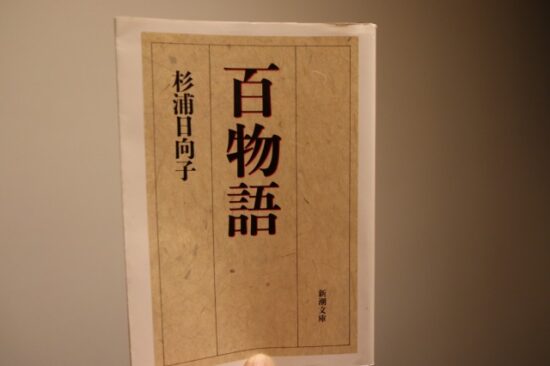 百物語
杉浦日向子
新潮文庫